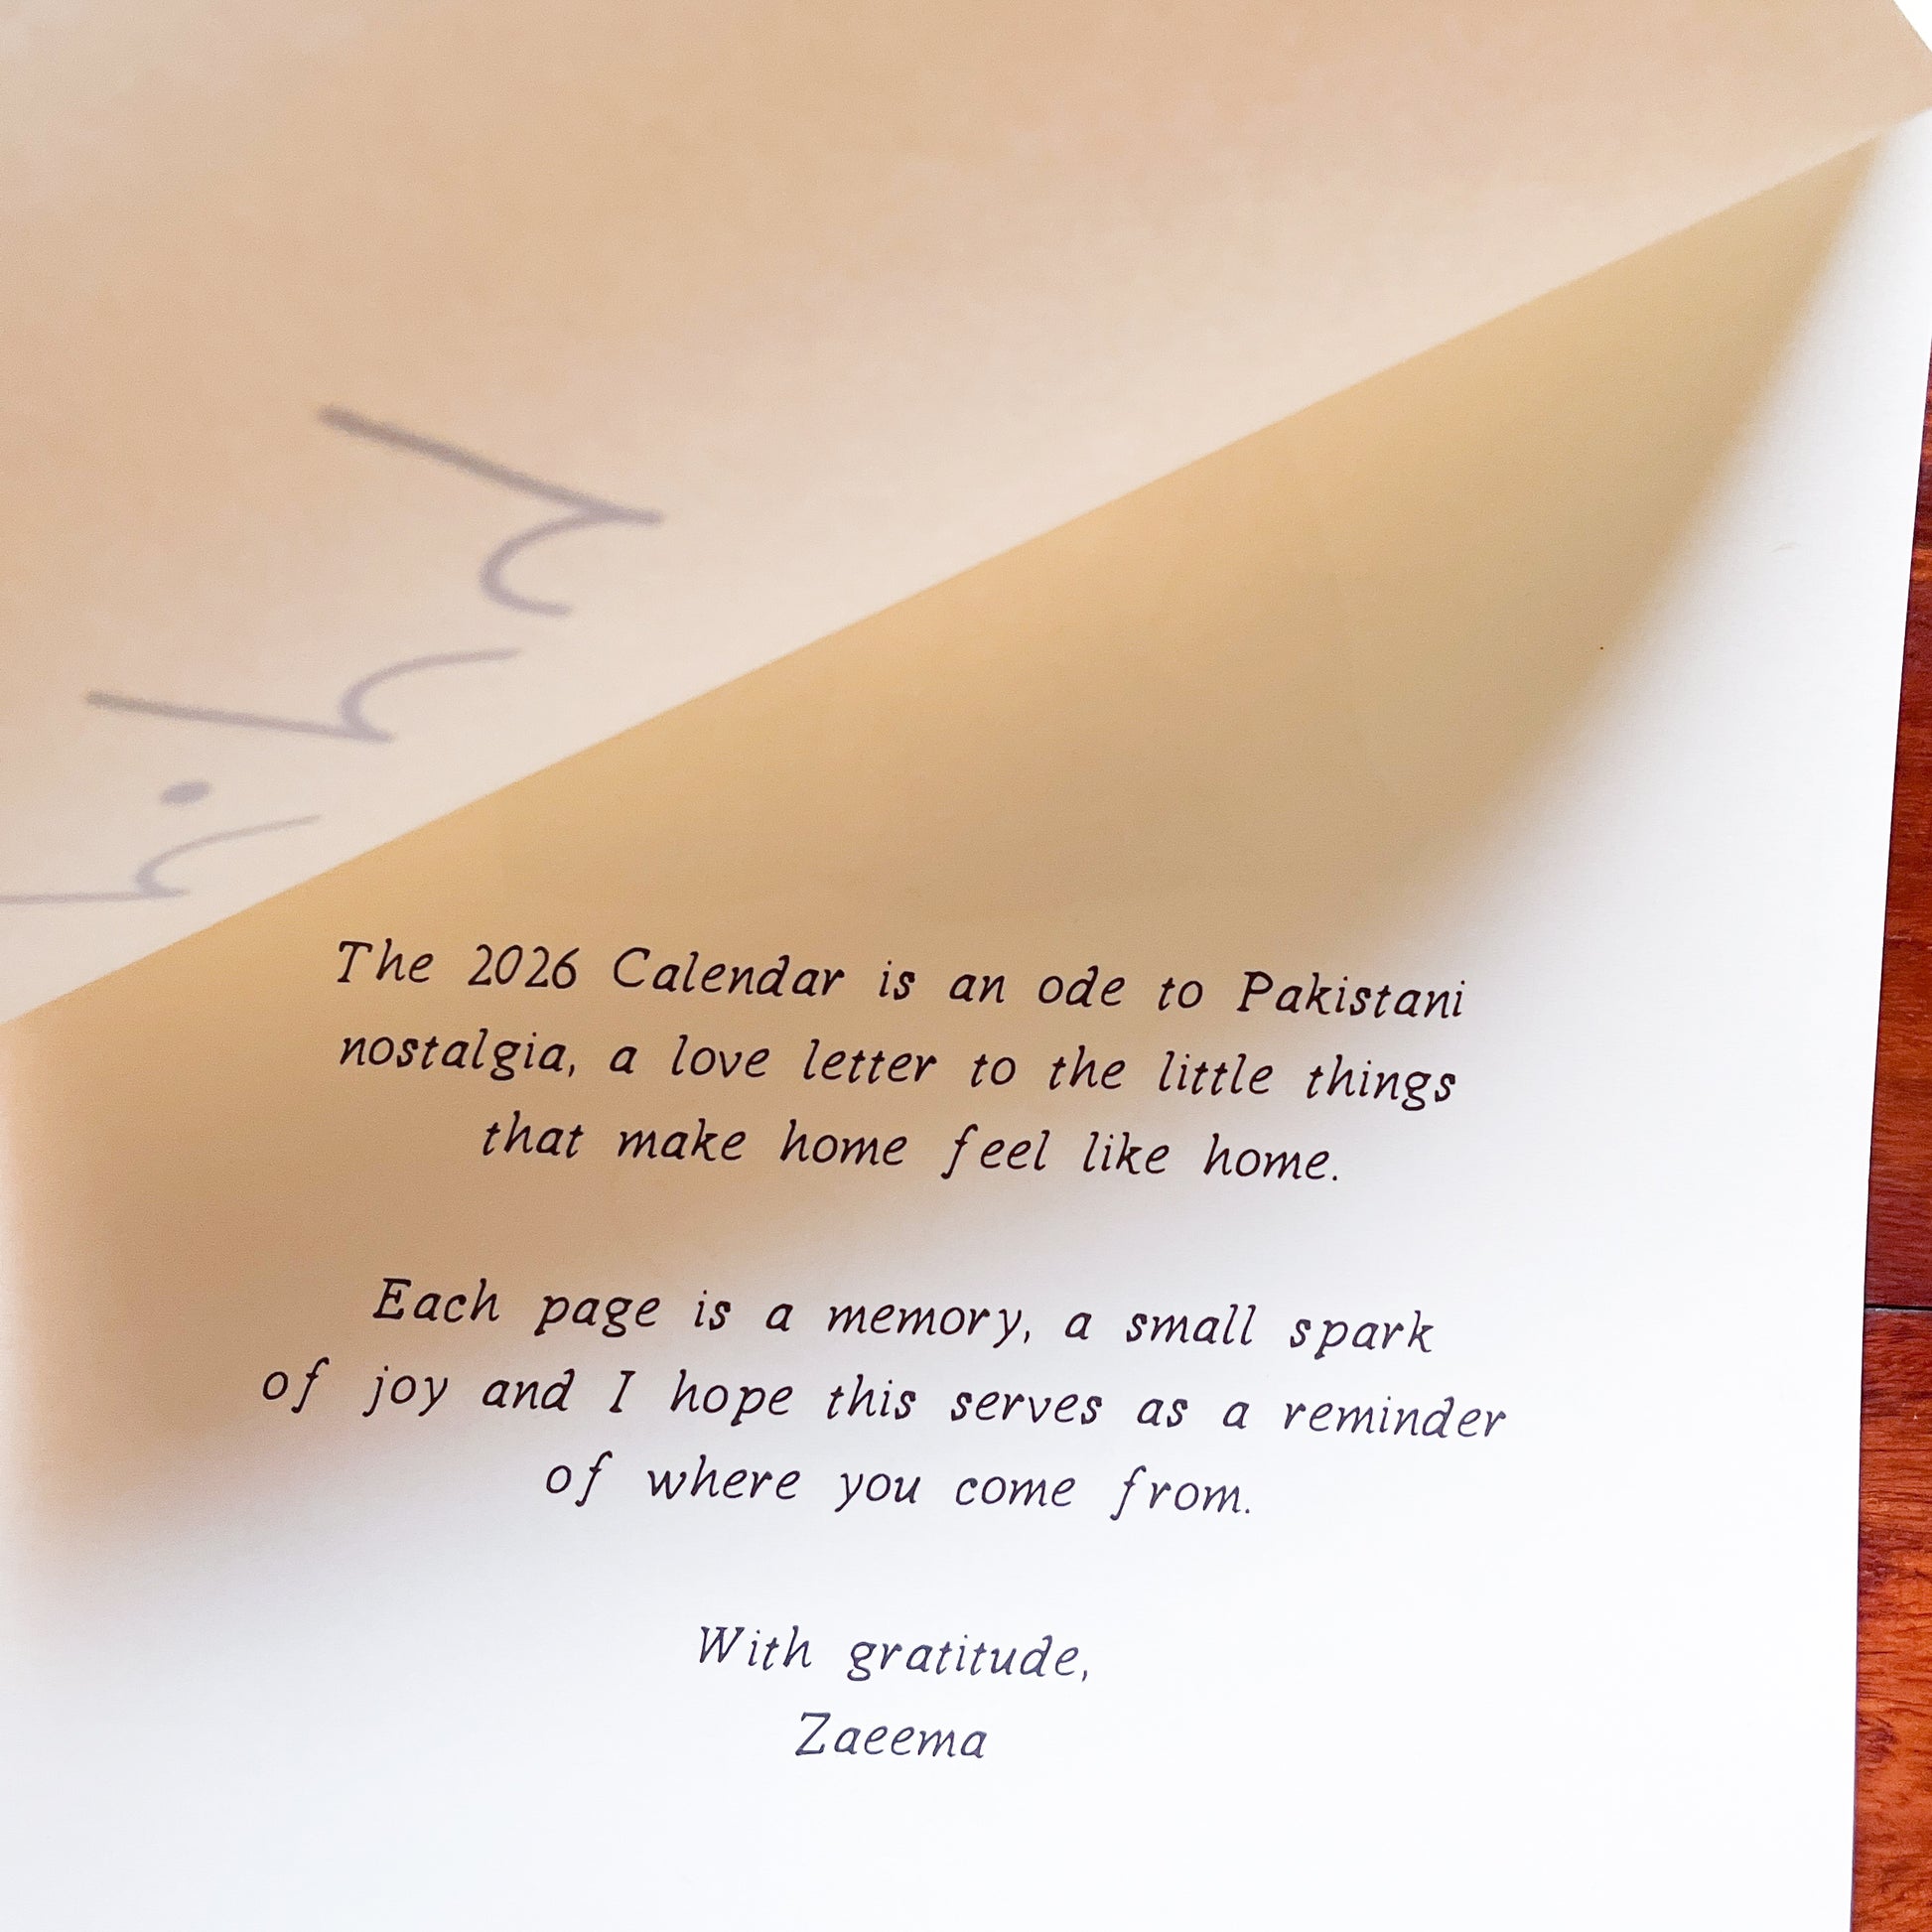 The 2026 Calendar is an ode to Pakistani
nostalgia, a love letter to the little things
that make home feel like home.
Each page is a memory, a small spark
of joy and I hope this serves as a reminder
of where you come from.
With gratitude,
Zaeema